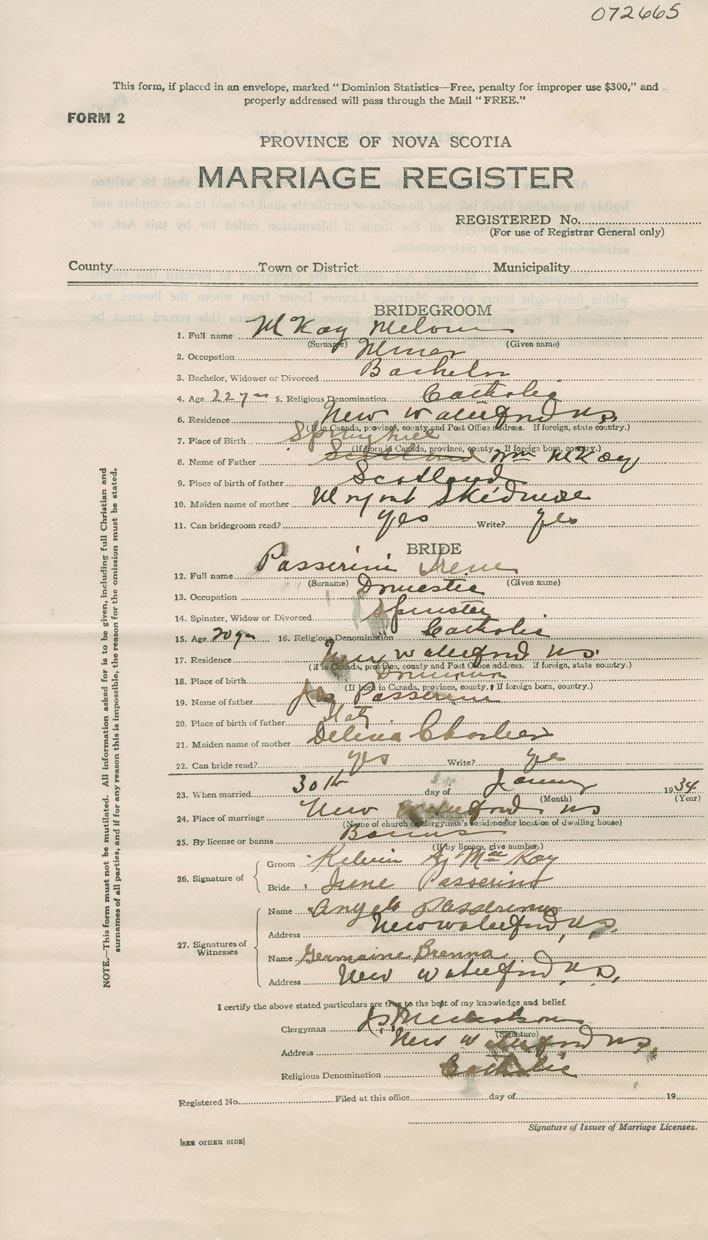 072665
This form, if placed in an envelope, marked "Dominion Statistics—Free, penalty for improper use $300," and
properly addressed will pass through the Mail "FREE."
FORM 2
PROVINCE OF NOVA SCOTIA
MARRIAGE REGISTER
REGISTERED No.
(For use of Registrar General only)
County Town or District Municipality
BRIDEGROOM
1. Full name McKay Melvin
(Surname) (Given name)
2. Occupation Miner
3. Bachelor, Widower or Divorced Bachelor
4. Age 22 yrs 5. Religious Denomination Catholic
6. Residence New Waterford N.S.
(If in Canada, province, county and Post Office address. If foreign, state country.)
7. Place of Birth Springhill
(If born in Canada, province, county. If foreign born, country.)
8. Name of Father Scotland Wm McKay
9. Place of birth of father Scotland
10. Maiden name of mother Skidmore
11. Can bridegroom read? Yes Write? Yes
BRIDE
12. Full name Passerini Irene
(Surname) (Given name)
13. Occupation Domestic
14. Spinster, Widow or Divorced Spinster
15. Age 20 yrs 16. Religious Denomination Catholic
17. Residence New Waterford N.S.
(If in Canada, province, county and Post Office address. If foreign, state country.)
18. Place of birth Dominion
(If born in Canada, province, county. If foreign born, country.)
19. Name of father Passerini
20. Place of birth of father Italy
21. Maiden name of mother Delina
22. Can bride read? yes Write? Yes
23. When married 30th day of January 1934
(Month) (Year)
24. Place of marriage New Waterford NS
(Name of church or clergyman's residence or location of dwelling house)
25. By license or banns Banns
(If by licence, give number.)
26. Signature of
Groom Kelvin McKay
Bride Irene Passerini
27. Signatures of
Witnesses
Name Angelo Passerini
Address New Waterford, N.S.
Name Germaine Brenna
Address New Waterford, N.S.
I certify the above stated particulars are true to the best of my knowledge and belief.
Clergyman
(Signature)
Address New Waterford N.S.
Religious Denomination Catholic
Registered No. Filed at this office day of 19
Signature of Issuer of Marriage Licenses.
[SEE OTHER SIDE]
NOTE.—This form must not be mutilated. All information asked for is to be given, including full Christian and
surnames of all parties, and if for any reason this is impossible, the reason for the omission must be stated.